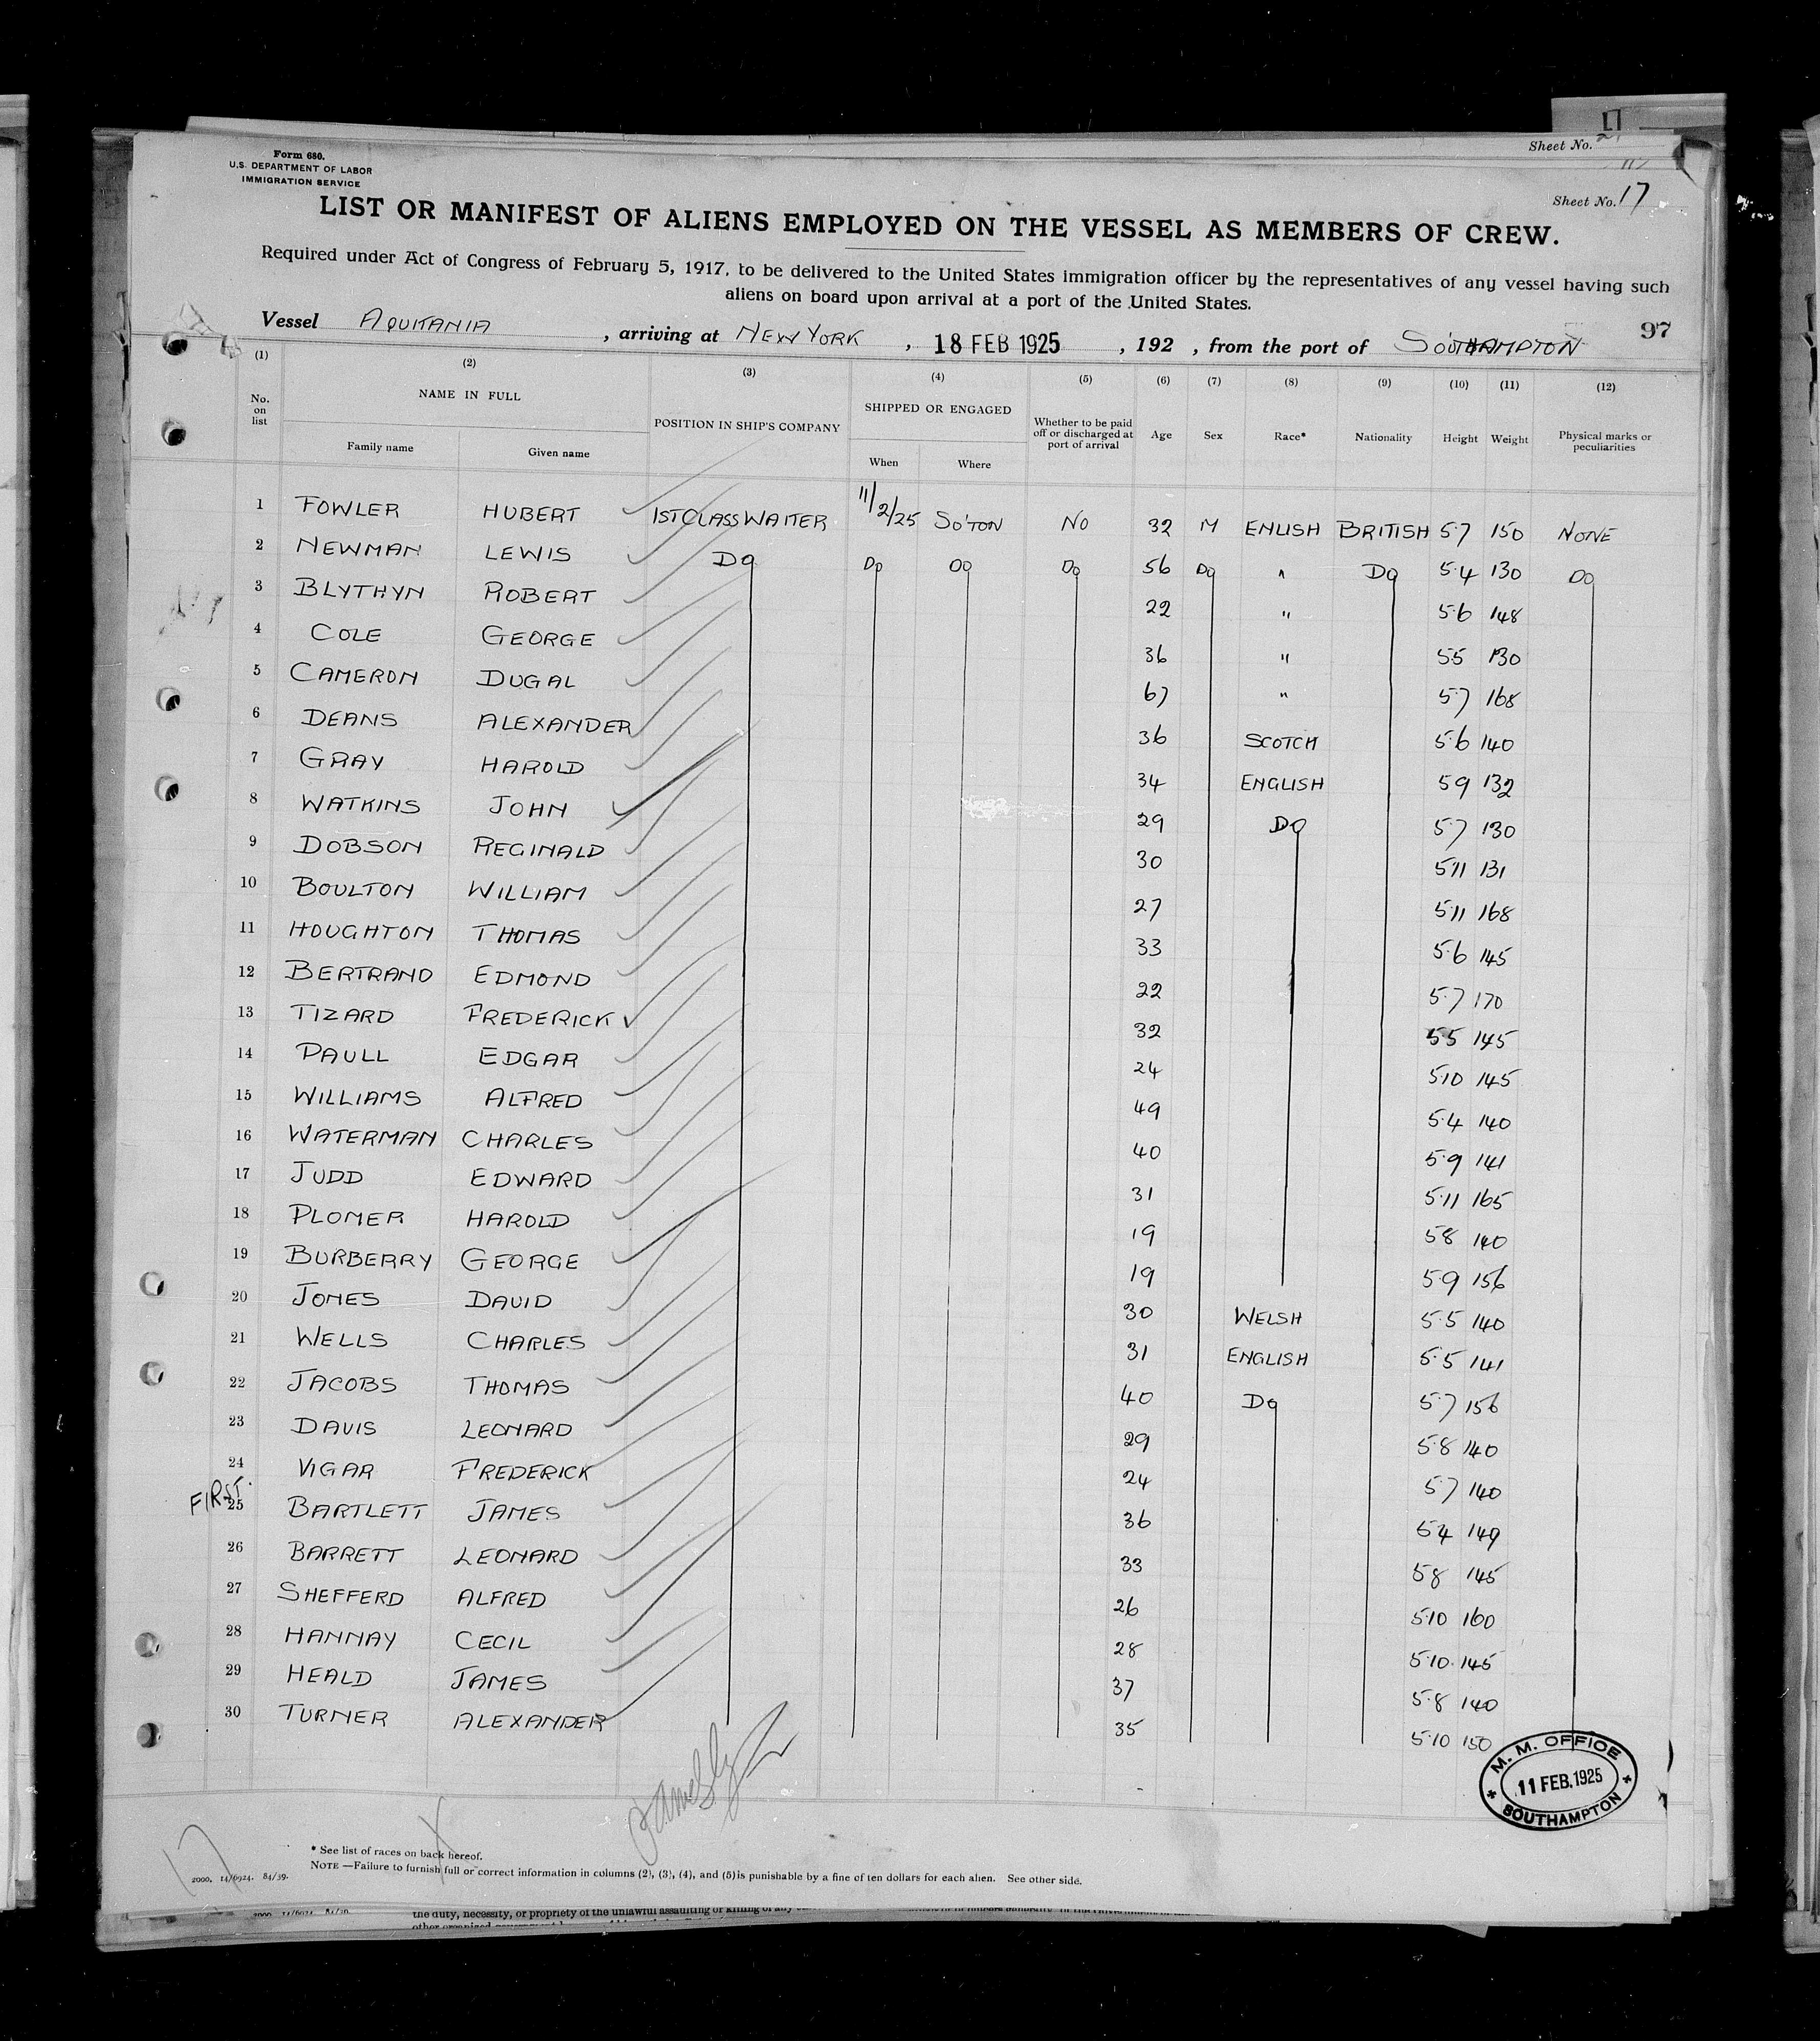 Sheet No.
Form 680.
U.S. DEPARTMENT OF LABOR
IMMIGRATION SERVICE
Sheet No. 17
LIST OR MANIFEST OF ALIENS EMPLOYED ON THE VESSEL AS MEMBERS OF CREW.
Required under Act of Congress of February 5, 1917, to be delivered to the United States immigration officer by the representatives of any vessel having such
aliens on board upon arrival at a port of the United States.
97
Vessel AQUITANIA, arriving at NEW YORK, 18 FEB 1925, 192 , from the port of SOUTHAMPTON
(1) (2) (3) (4) (5) (6) (7) (8) (9) (10) (11) (12)
No. on list NAME IN FULL POSITION IN SHIP'S COMPANY SHIPPED OR ENGAGED Whether to be paid off or discharged at port of arrival Age Sex Race* Nationality Height Weight Physical marks or peculiarities
Family name Given name When Where
1 FOWLER HUBERT 1ST CLASS WAITER 11/2/25 SO'TON NO 32 M ENLISH BRITISH 5·7 150 NONE
2 NEWMAN LEWIS DO DO DO DO 56 DO " DO 5·4 130 DO
3 BLYTHYN ROBERT 22 " 5·6 148
4 COLE GEORGE 36 " 55 130
5 CAMERON DUGAL 67 " 57 168
6 DEANS ALEXANDER 36 SCOTCH 5·6 140
7 GRAY HAROLD 34 ENGLISH 59 132
8 WATKINS JOHN 29 DO 5·7 130
9 DOBSON REGINALD 30 5·11 131
10 BOULTON WILLIAM 27 5·11 168
11 HOUGHTON THOMAS 33 5·6 145
12 BERTRAND EDMOND 22 5·7 170
13 TIZARD FREDERICK 32 55 145
14 PAULL EDGAR 24 5·10 145
15 WILLIAMS ALFRED 49 5·4 140
16 WATERMAN CHARLES 40 5·9 141
17 JUDD EDWARD 31 5·11 165
18 PLOMER HAROLD 19 58 140
19 BURBERRY GEORGE 19 5·9 156
20 JONES DAVID 30 WELSH 5·5 140
21 WELLS CHARLES 31 ENGLISH 5·5 141
22 JACOBS THOMAS 40 DO 5·7 156
23 DAVIS LEONARD 29 5·8 140
24 VIGAR FREDERICK 24 5·7 140
FIRST. 25 BARTLETT JAMES 36 54 149
26 BARRETT LEONARD 33 58 145
27 SHEFFERD ALFRED 26 5·10 160
28 HANNAY CECIL 28 5·10 145
29 HEALD JAMES 37 5·8 140
30 TURNER ALEXANDER 35 5·10 150
M. M. OFFICE
11 FEB. 1925
SOUTHAMPTON
17
* See list of races on back hereof.
NOTE —Failure to furnish full or correct information in columns (2), (3), (4), and (5) is punishable by a fine of ten dollars for each alien. See other side.
2000. 14/6924. 84/39.
the duty, necessity, or propriety of the unlawful assaulting or killing of any